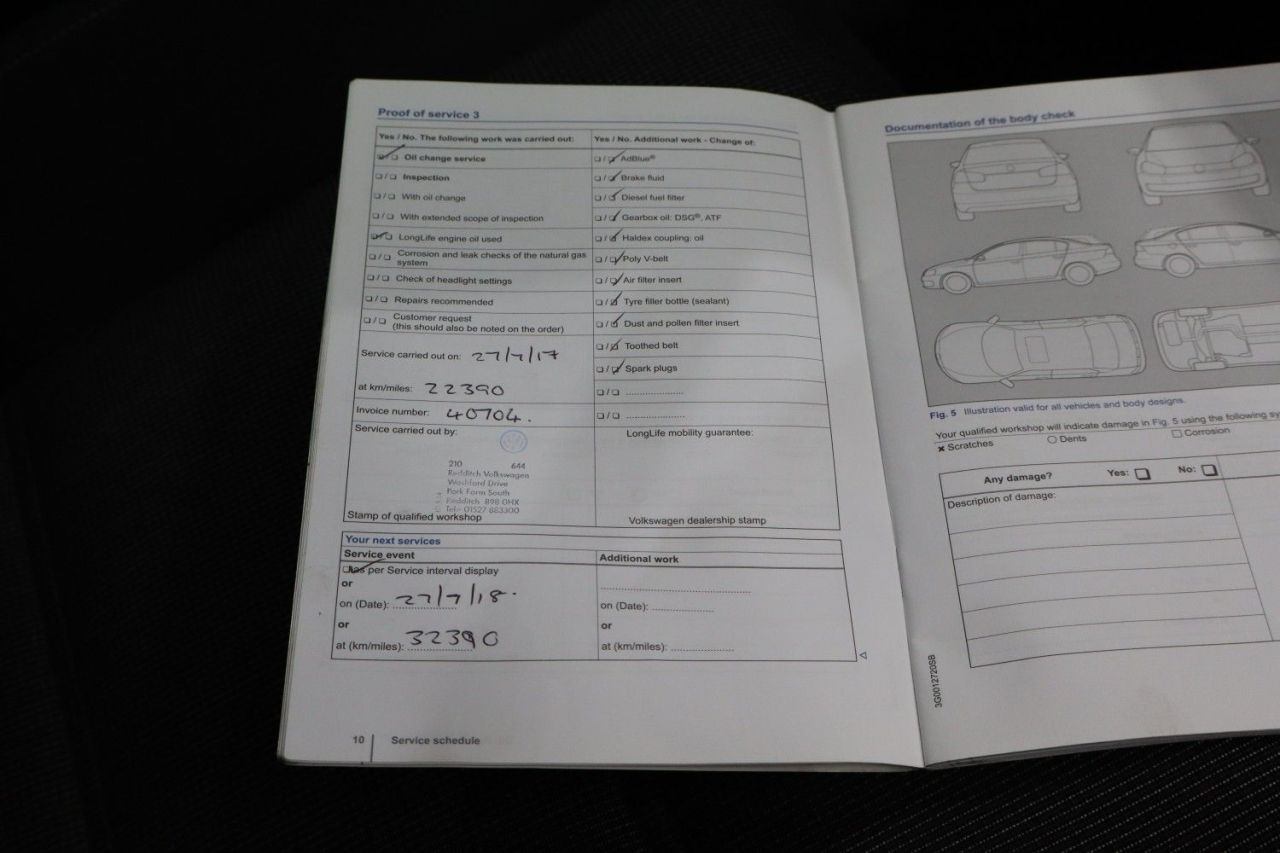 Proof of service 3
Yes / No. The following work was carried out:
Oil change service
Inspection
With oil change
With extended scope of inspection
LongLife engine oil used
Corrosion and leak checks of the natural gas
system
Check of headlight settings
Repairs recommended
Customer request
(this should also be noted on the order)
Service carried out on: 27/7/17
at km/miles: 22390
Invoice number: 40704.
Service carried out by:
210 644
Redditch Volkswagen
Washford Drive
Park Farm South
Redditch B98 0HX
Tel:- 01527 883300
Stamp of qualified workshop
Yes / No. Additional work - Change of:
AdBlue®
Brake fluid
Diesel fuel filter
Gearbox oil: DSG®, ATF
Haldex coupling: oil
Poly V-belt
Air filter insert
Tyre filler bottle (sealant)
Dust and pollen filter insert
Toothed belt
Spark plugs
LongLife mobility guarantee:
Volkswagen dealership stamp
Your next services
Service event
as per Service interval display
or
on (Date): 27/7/18.
or
at (km/miles): 32390
Additional work
on (Date):
or
at (km/miles):
10 Service schedule
Documentation of the body check
Fig. 5 Illustration valid for all vehicles and body designs.
Your qualified workshop will indicate damage in Fig. 5 using the following
Scratches Dents Corrosion
Any damage? Yes: No:
Description of damage:
3G0012720SB